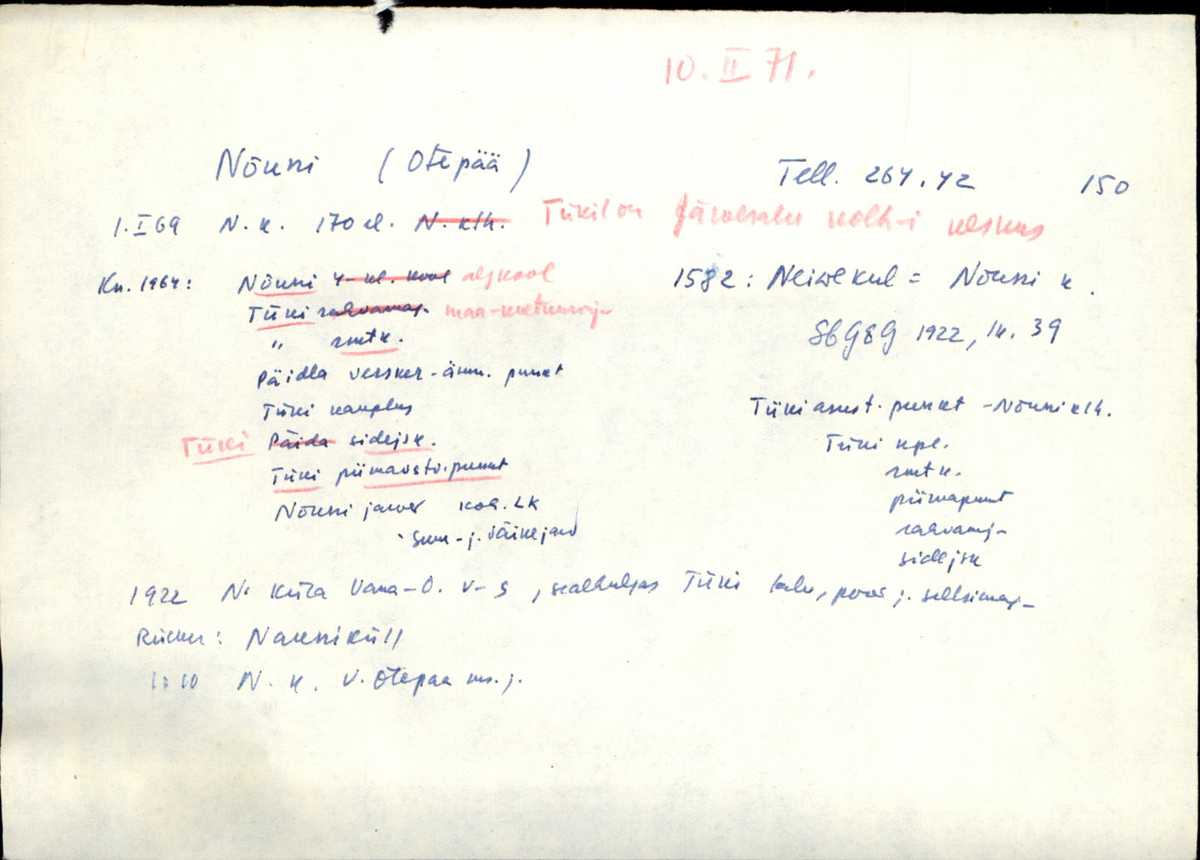 10. II 71.
Nõuni (Otepää) Tell. 264.42 150
1. I 69 N. k. 170 el. N. klh. Tükil on Järvesalu kolh-i keskus
Kn. 1964: Nõuni 4-kl. kool algkool
Tüki rahvamaj. maa-raamatukogu
" rmtk.
Päidla velsker-ämm. punkt
Tüki kauplus
Tüki Päida sidejsk.
Tüki piimavastv.punkt
Nõuni jaosk. LK
Suur- j. Väikejärv
1582: Neiwekul = Nõuni k.
SbGEG 1922, lk. 39
Tüki asust. punkt - Nõuni klh.
Tüki kpl.
rmtk.
piimapunkt
rahvamj-
sidejsk
1922 N. küla Vana-O. v-s, sealhulgas Tüki talu, poos j. seltsimaj-
Rücker: Nauniküll
N. k. v. Otepää ms. j.